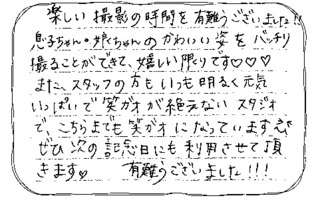 楽しい撮影の時間を有難うございました!!
息子ちゃん・娘ちゃんのかわいい姿をバッチリ
撮ることができて、嬉しい限りです♡♡♡
また、スタッフの方もいつも明るく元気
いっぱいで笑ガオが絶えないスタジオ
で、こちらまでも笑ガオになっています
ぜひ次の記念日にも利用させて頂
きます♡ 有難うございました!!!